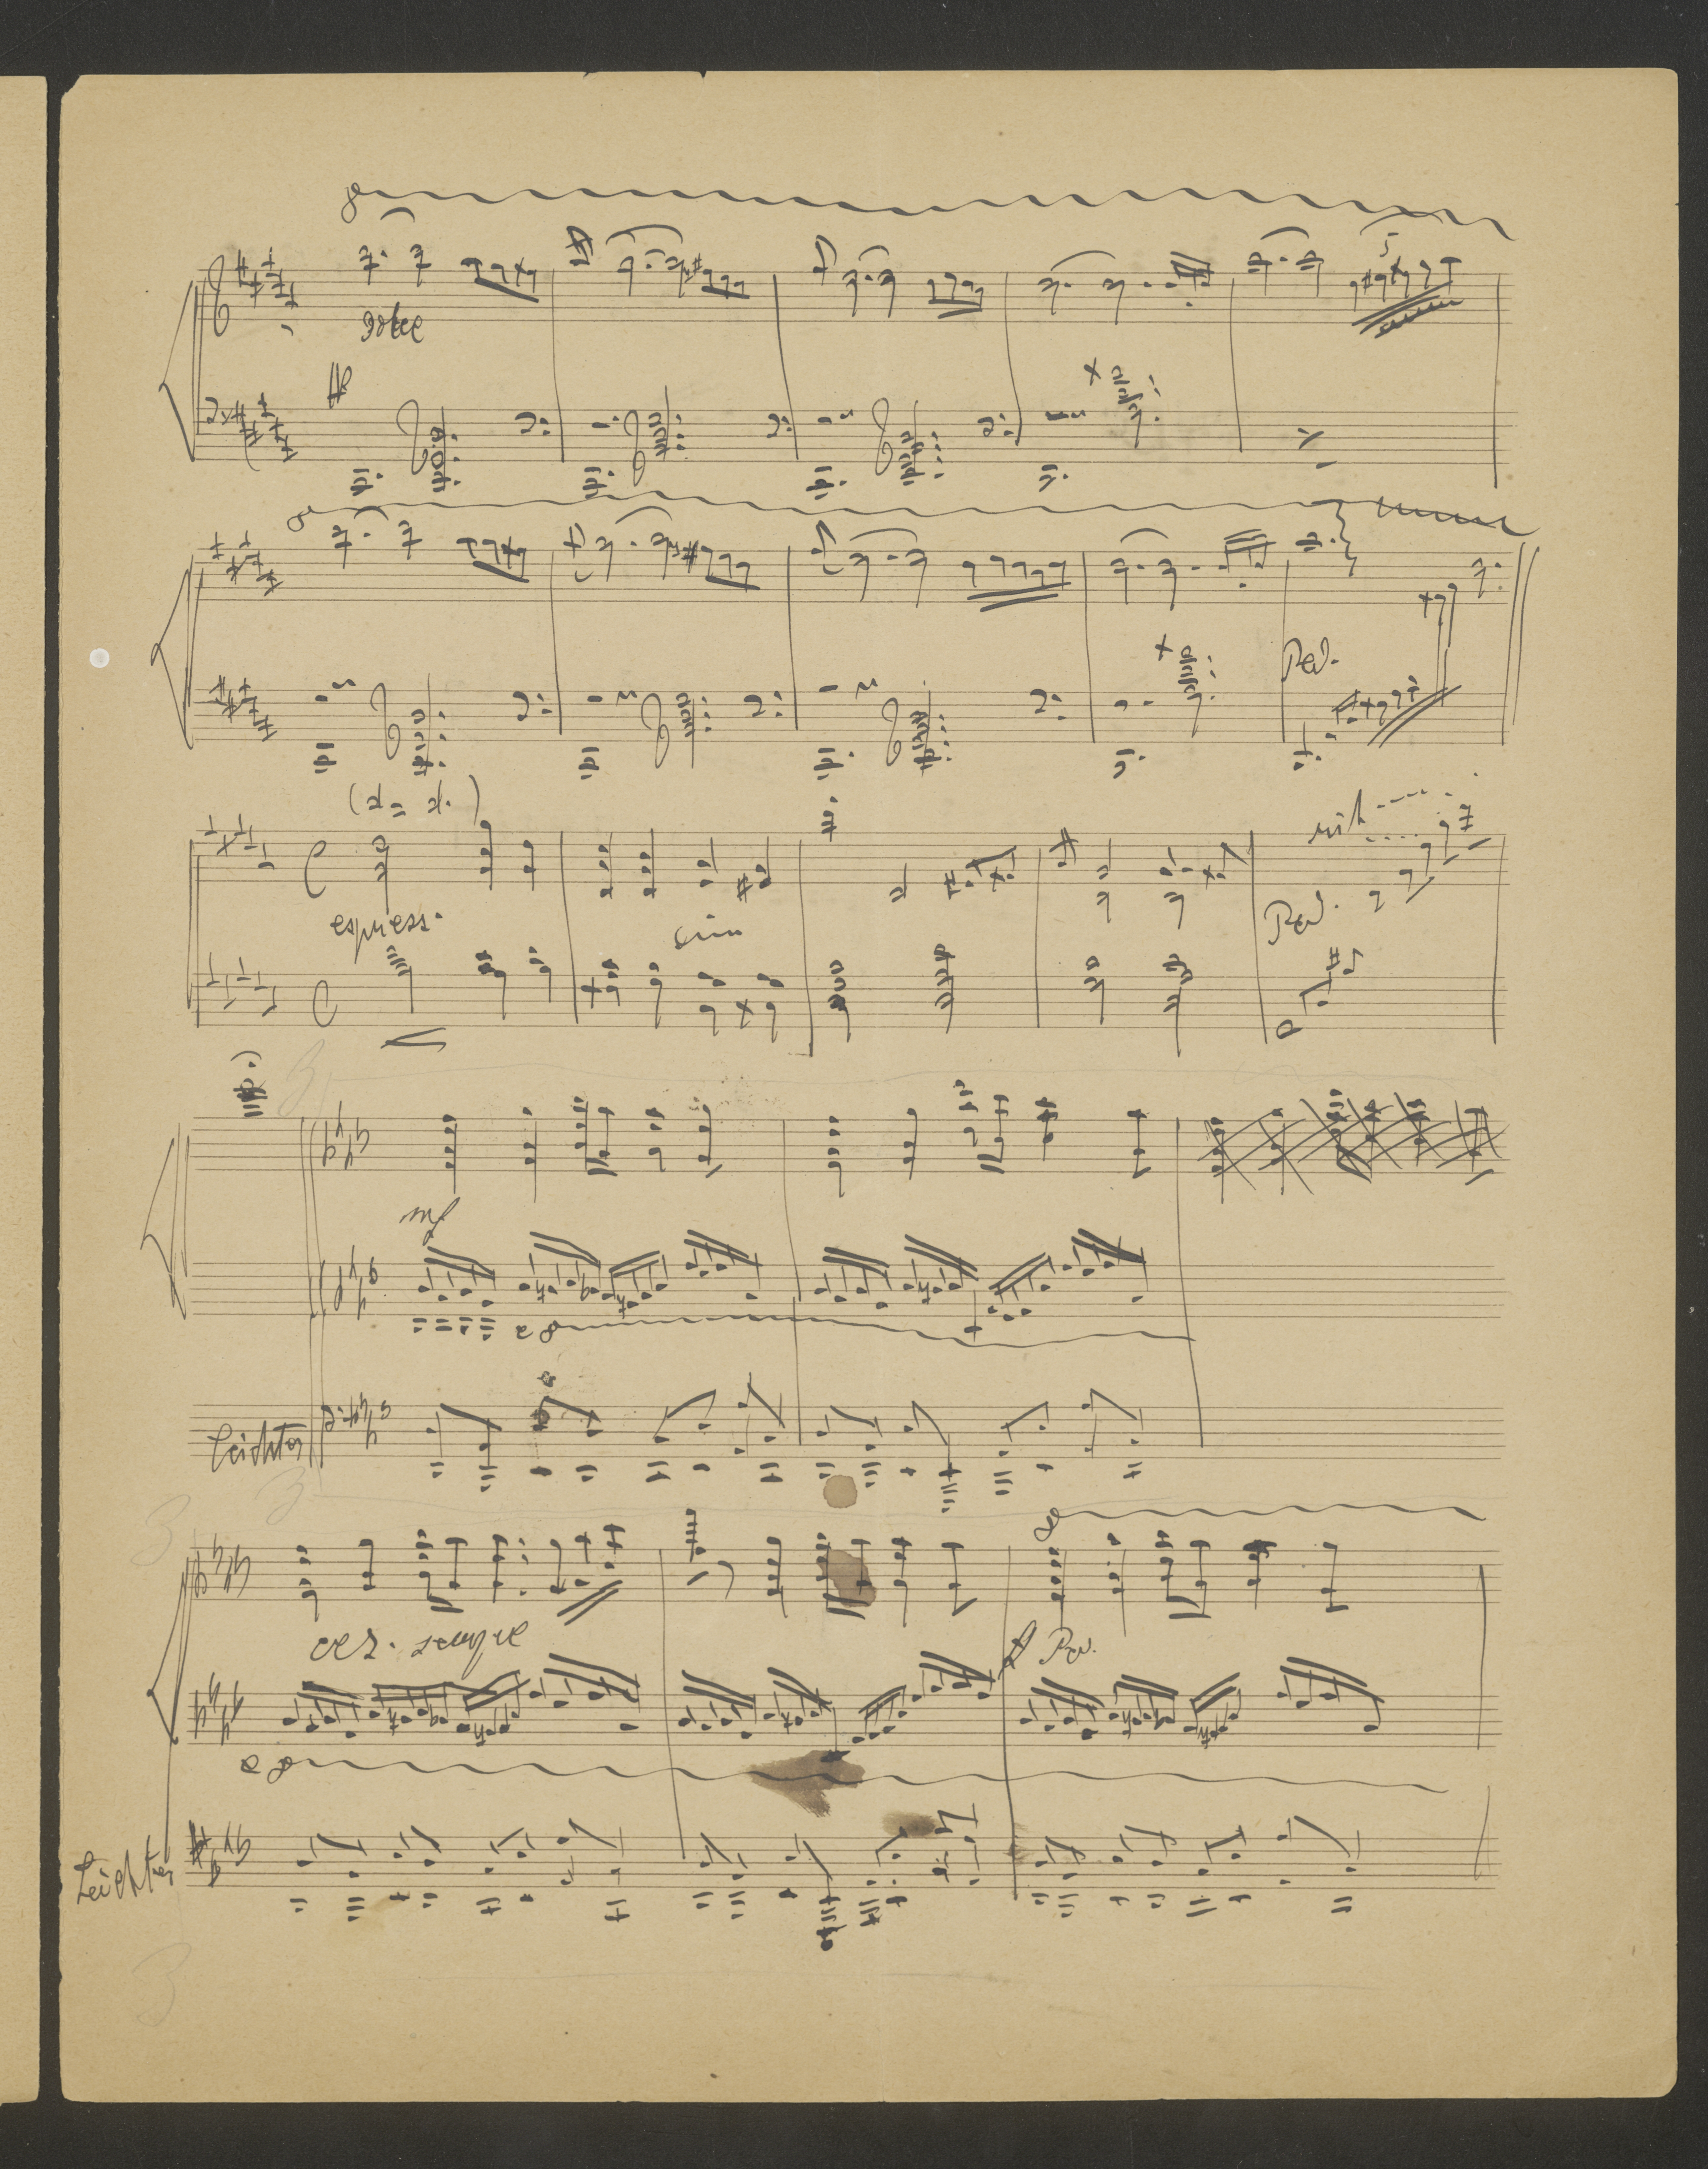 8
dolce
5
8
Ped.
(𝅗𝅥 = 𝅗𝅥.)
rit
espress.
sim
Ped.
mf
8
Leichter
8
cresc. sempre
f Ped.
8
Leichter